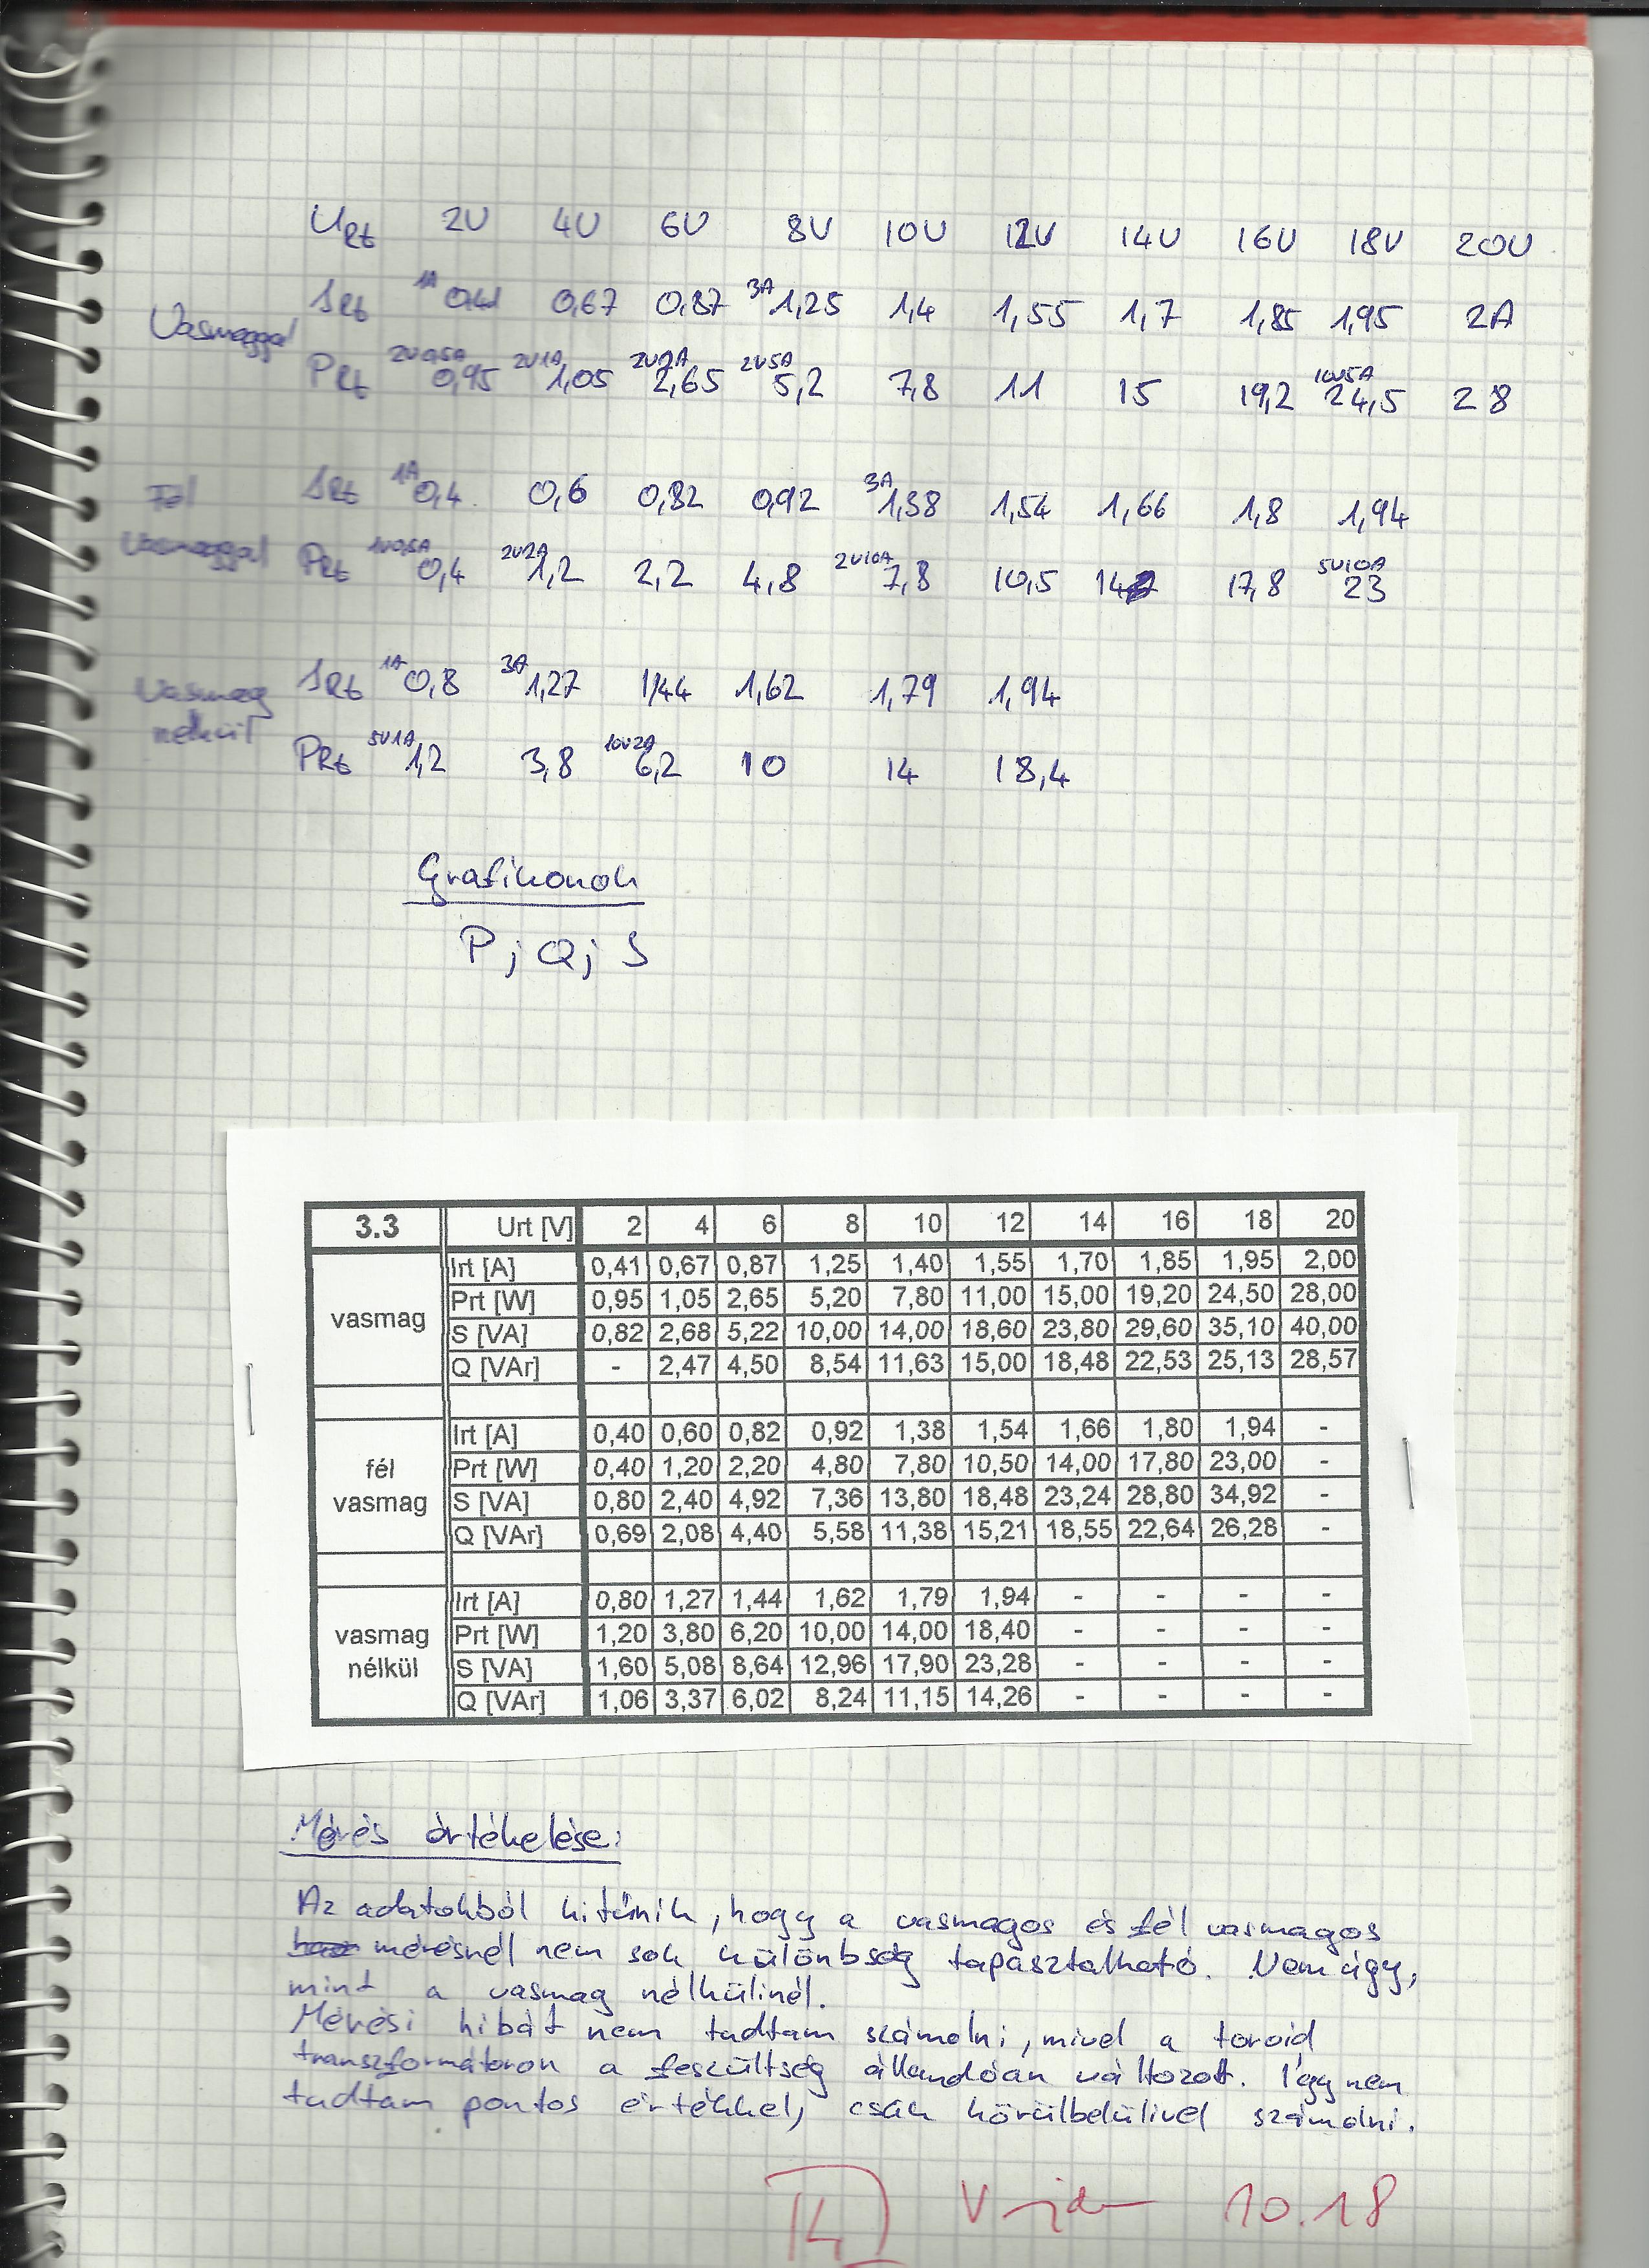 URt 2V 4V 6V 8V 10V 12V 14V 16V 18V 20V
Vasmaggal
IRt 1A 0,41 0,67 0,87 3A 1,25 1,4 1,55 1,7 1,85 1,95 2A
PRt 2V0,5A 0,95 2V1A 1,05 2V2A 2,65 2V5A 5,2 7,8 11 15 19,2 10V5A 24,5 28
Fél
vasmaggal
IRt 1A 0,4 0,6 0,82 0,92 3A 1,38 1,54 1,66 1,8 1,94
PRt 1V0,5A 0,4 2V2A 1,2 2,2 4,8 2V10A 7,8 10,5 14 17,8 5V10A 23
Vasmag
nélkül
IRt 1A 0,8 3A 1,27 1,44 1,62 1,79 1,94
PRt 5V1A 1,2 3,8 10V2A 6,2 10 14 18,4
Grafikonok
P; Q; S
3.3 Urt [V] 2 4 6 8 10 12 14 16 18 20
vasmag
Irt [A] 0,41 0,67 0,87 1,25 1,40 1,55 1,70 1,85 1,95 2,00
Prt [W] 0,95 1,05 2,65 5,20 7,80 11,00 15,00 19,20 24,50 28,00
S [VA] 0,82 2,68 5,22 10,00 14,00 18,60 23,80 29,60 35,10 40,00
Q [VAr] - 2,47 4,50 8,54 11,63 15,00 18,48 22,53 25,13 28,57
fél
vasmag
Irt [A] 0,40 0,60 0,82 0,92 1,38 1,54 1,66 1,80 1,94 -
Prt [W] 0,40 1,20 2,20 4,80 7,80 10,50 14,00 17,80 23,00 -
S [VA] 0,80 2,40 4,92 7,36 13,80 18,48 23,24 28,80 34,92 -
Q [VAr] 0,69 2,08 4,40 5,58 11,38 15,21 18,55 22,64 26,28 -
vasmag
nélkül
Irt [A] 0,80 1,27 1,44 1,62 1,79 1,94 - - - -
Prt [W] 1,20 3,80 6,20 10,00 14,00 18,40 - - - -
S [VA] 1,60 5,08 8,64 12,96 17,90 23,28 - - - -
Q [VAr] 1,06 3,37 6,02 8,24 11,15 14,26 - - - -
Mérés értékelése:
Az adatokból kitűnik, hogy a vasmagos és fél vasmagos
mérésnél nem sok különbség tapasztalható. Nem úgy,
mint a vasmag nélkülinél.
Mérési hibát nem tudtam számolni, mivel a toroid
transzformátoron a feszültség állandóan változott. Így nem
tudtam pontos értékkel, csak körülbelülivel számolni.
10.18